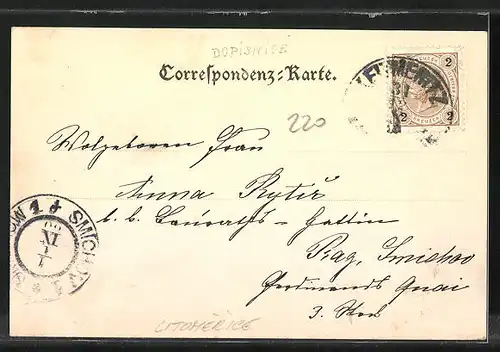 DOPISNICE
Correspondenz-Karte.
220
LEITMERITZ
2
2 2
Wolgeboren Frau
Anna Rytíř
k. k. Bauraths-Gattin
Prag, Smichov
Ferdinands Quai
3. Stock
SMICHOW
XI
LITOMĚŘICE